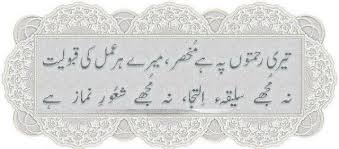 تیری رحمتوں پہ ہے مُنحصر، میرے ہر عمل کی قبولیت
نہ مُجھے سلیقہء اِلتجا، نہ مُجھے شعُورِ نماز ہے